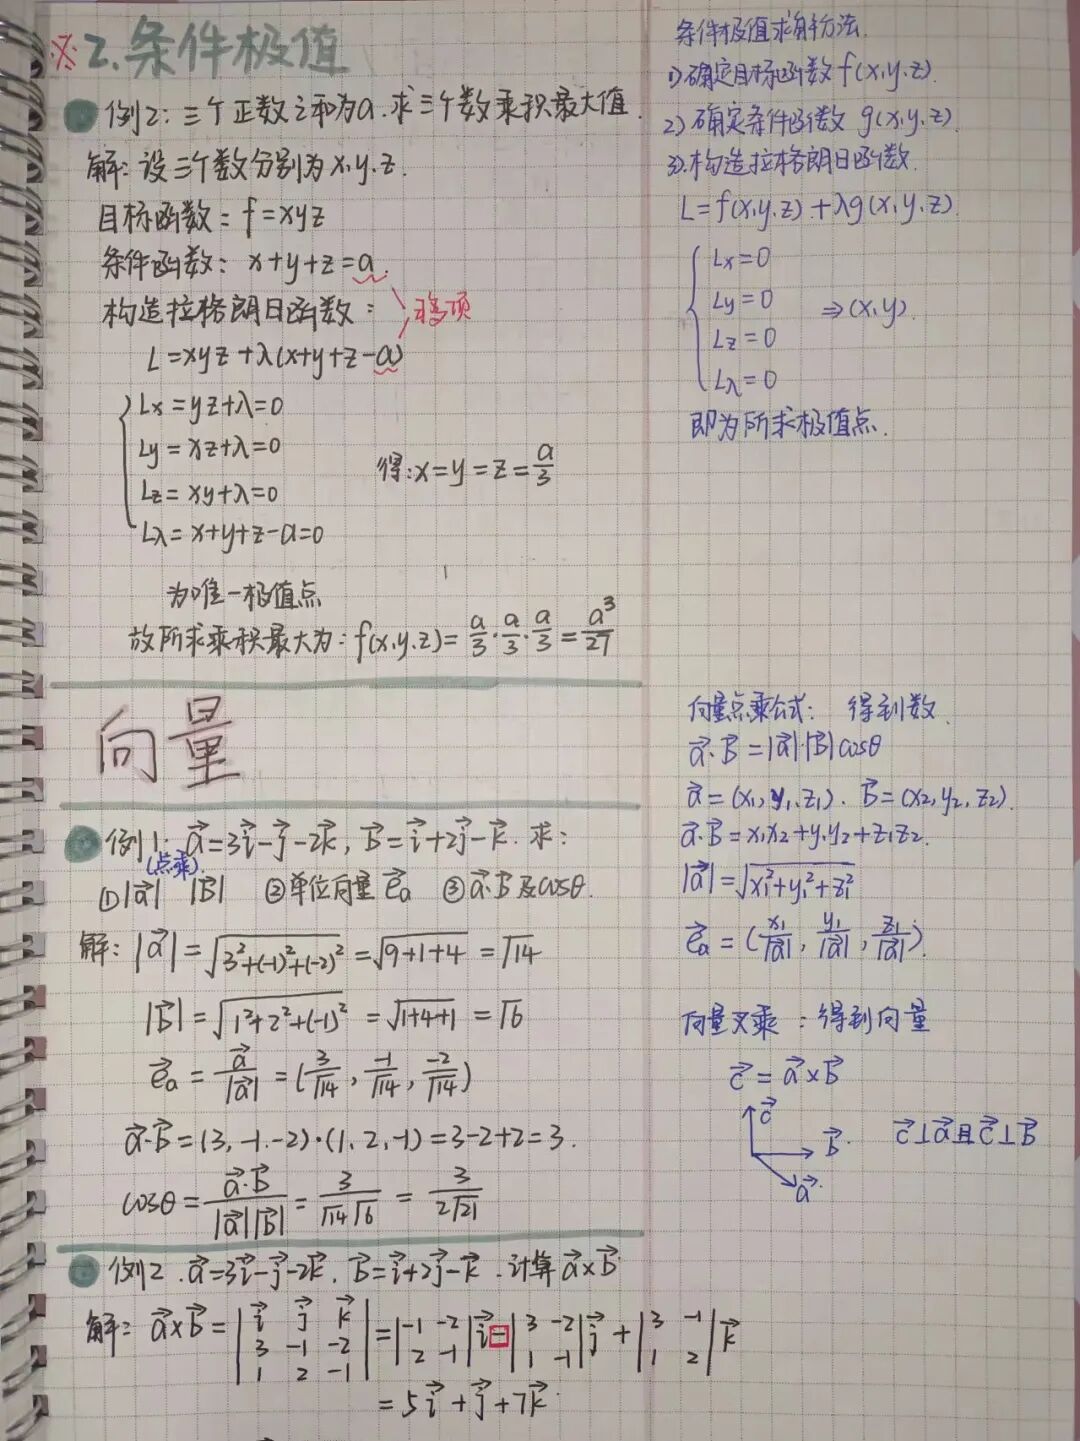 ※2.条件极值
例2：三个正数之和为a.求三个数乘积最大值.
解：设三个数分别为x.y.z.
目标函数：f=xyz
条件函数：x+y+z=a.
移项
构造拉格朗日函数：
L=xyz+λ(x+y+z-a)
Lx=yz+λ=0
Ly=xz+λ=0
Lz=xy+λ=0
Lλ=x+y+z-a=0
得:x=y=z=a/3
为唯一极值点
故所求乘积最大为：f(x.y.z)=a/3·a/3·a/3=a³/27
条件极值求解方法.
1)确定目标函数f(x.y.z).
2)确定条件函数g(x.y.z).
3).构造拉格朗日函数.
L=f(x.y.z)+λg(x.y.z).
Lx=0
Ly=0
Lz=0
Lλ=0
⇒(x.y).
即为所求极值点.
向量
例1: a⃗=3i⃗-j⃗-2k⃗, b⃗=i⃗+2j⃗-k⃗. 求：
(点乘).
①|a⃗| |b⃗| ②单位向量e⃗a ③a⃗·b⃗及cosθ.
解：|a⃗|=√(3²+(-1)²+(-2)²)=√(9+1+4)=√14
|b⃗|=√(1²+2²+(-1)²)=√(1+4+1)=√6
e⃗a=a⃗/|a⃗|=(3/√14, -1/√14, -2/√14)
a⃗·b⃗=(3,-1.-2)·(1.2,-1)=3-2+2=3.
cosθ=a⃗·b⃗/|a⃗||b⃗|=3/√14√6=3/2√21
向量点乘公式： 得到数.
a⃗·b⃗=|a⃗|·|b⃗|cosθ
a⃗=(x₁,y₁,z₁). b⃗=(x₂,y₂,z₂).
a⃗·b⃗=x₁x₂+y₁y₂+z₁z₂.
|a⃗|=√(x₁²+y₁²+z₁²)
e⃗a=(x₁/|a⃗|, y₁/|a⃗|, z₁/|a⃗|).
向量叉乘：得到向量
c⃗=a⃗×b⃗
c⃗
b⃗.
a⃗.
c⃗⊥a⃗且c⃗⊥b⃗
例2.a⃗=3i⃗-j⃗-2k⃗. b⃗=i⃗+2j⃗-k⃗.计算a⃗×b⃗
解：a⃗×b⃗=|i⃗ j⃗ k⃗; 3 -1 -2; 1 2 -1|=|-1 -2; 2 -1|i⃗-|3 -2; 1 -1|j⃗+|3 -1; 1 2|k⃗
=5i⃗+j⃗+7k⃗.